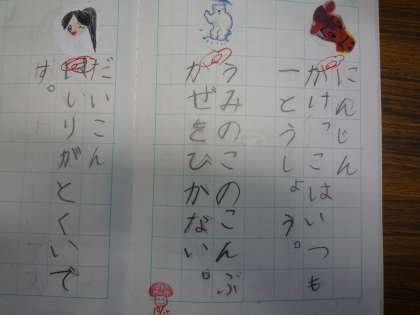 にんじん
かけっこはいつも
一とうしょう。
うみのこのこんぶ
かぜをひかない。
だいこん
がとくいで
す。